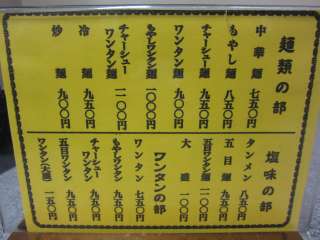 麺類の部
中華麺 七五〇円
もやし麺 八五〇円
チャーシュー麺 九五〇円
ワンタン麺 九〇〇円
もやしワンタン麺 一〇〇〇円
チャーシューワンタン麺 一一〇〇円
冷麺 九五〇円
炒麺 九〇〇円
塩味の部
タンメン 八五〇円
五目麺 九五〇円
五目ワンタン麺 一一〇〇円
大盛 一〇〇円
ワンタンの部
ワンタン 七五〇円
もやしワンタン 八五〇円
チャーシューワンタン 九五〇円
五目ワンタン 九五〇円
ワンタン(大盛) 一五〇円